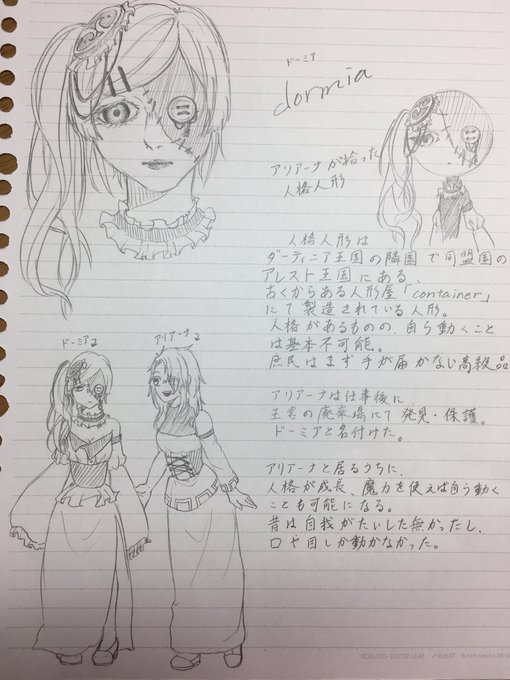 ドーミア
dormia
アリアーナが拾った
人格人形
人格人形は
ダーティニア王国の隣国で同盟国の
アレスト王国にある
古くからある人形屋「container」
にて製造されている人形。
人格があるものの、自ら動くこと
は基本不可能。
庶民はまず手が届かない高級品
ドーミア↓
アリアーナ↓
アリアーナは仕事後に、
王宮の廃棄場にて発見・保護。
ドーミアと名付けた。
アリアーナと居るうちに、
人格が成長、魔力を使えば自ら動く
ことも可能になる。
昔は自我がたいした無かったし、
口や目しか動かなかった。
KOKUYO LOOSE-LEAF